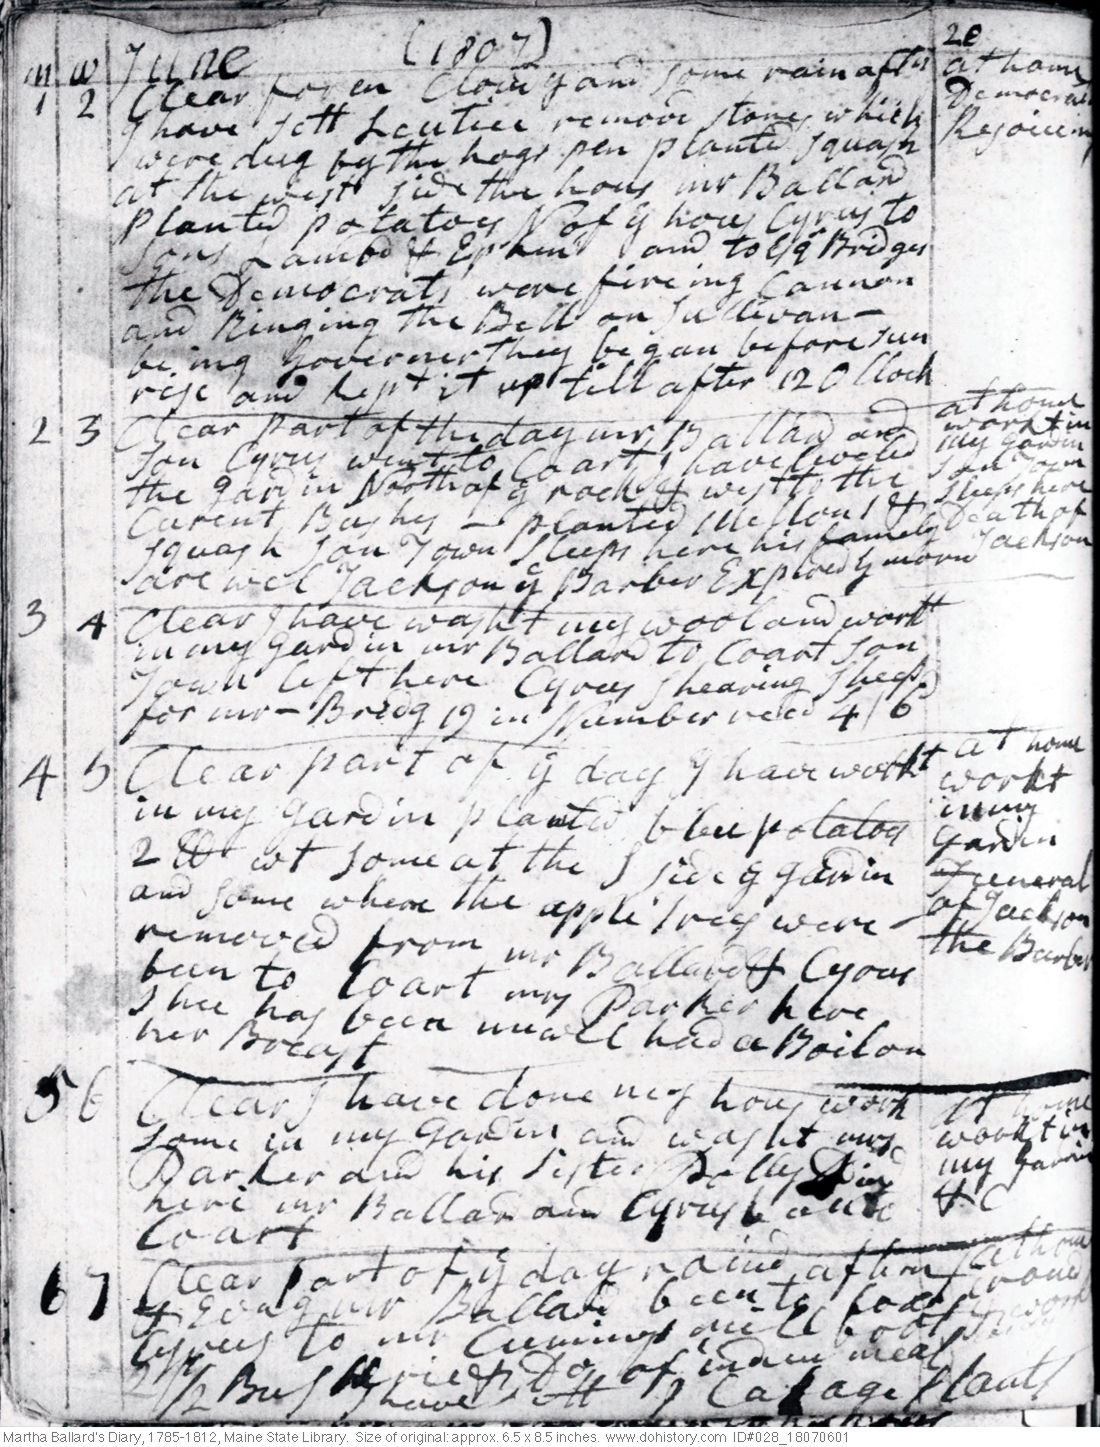 m w June (1807) 20
1 2 Clear foren Clowdy and some rain aftn at home
Democrats
Rejoiceing
I have sett Leuticc remove stones which
were dug by the hogs pen planted squash
at the west side the hous mr Ballard
planted potatoes N of ye hous Cyrus to
sons Lambd & Ephm and to Esq Bridges
the Democrats were fireing Cannon
and Ringing the Bell on Sullivan
being Governer they began before sun
rise and kept it up till after 12 O Clock
2 3 Clear part of the day mr Ballard and at home
workt in
my gardin
son Town
sleeps here
Death of
Jackson
son Cyrus went to Coart I have leveled
the gardin North of ye rock & west to the
Curent Bushes planted Mellons &
squash son Town Sleeps here his family
are well Jackson ye Barber Expired ye morn
3 4 Clear I have washt my wool and workt
in my gardin mr Ballard to Coart son
Town left here Cyrus shearing sheep
for mr Bridg 19 in Number recd 4/6
4 5 Clear part of ye day I have workt at home
workt
in my
gardin
Funeral
of Jackson
the Barber
in my gardin planted blue potatoes
2 wt some at the S side ye gardin
and some where the apple trees were
removed from mr Ballard & Cyrus
been to Coart mrs Parker here
shee has been unwell had a Boil on
her Breast
5 6 Clear I have done my hous work at home
workt in
my gardin
& C
some in my gardin and washt mrs
Parker and his sister Polly Dind
here mr Ballard and Cyrus been to
Coart
6 7 Clear part of ye day raind aftern at home
mr Ballard been to
Cyrus to mr Cumings mill
2 1/2 Bush Do of indien meal
I have sett Cabage plants
Martha Ballard's Diary, 1785-1812, Maine State Library. Size of original: approx. 6.5 x 8.5 inches. www.dohistory.com ID#028_18070601